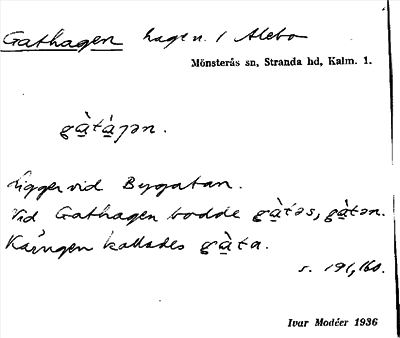 Gathagen hagen i Alebo
Mönsterås sn, Stranda hd, Kalm. l.
gà̱tá̱ɟən.
ligger vid Bygatan.
Vid Gathagen bodde gà̱təs, gà̱tən.
Käringen kallades gà̱ta.
s. 191, 160.
Ivar Modéer 1936